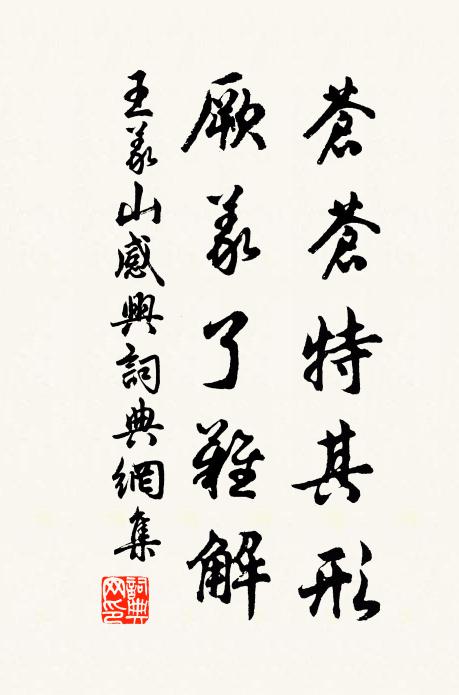 蒼蒼特其形
厥義了難解
王義山感興詞典網集
詞典網印